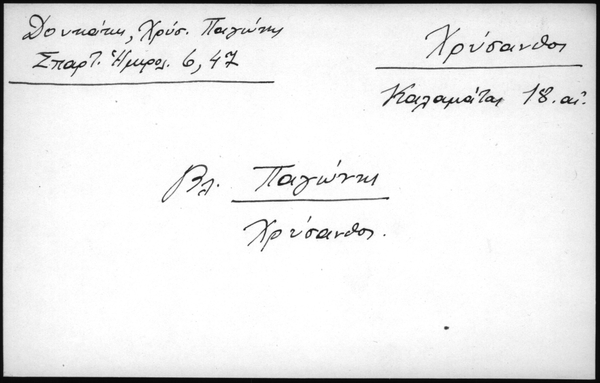 Δουκάκη, Χρύσ. Παγώνης
Σπαρτ. Ἡμερολ. 6, 47
Χρύσανθος
Καλαμάτας 18. αἰ.
Βλ. Παγώνης
Χρύσανθος.